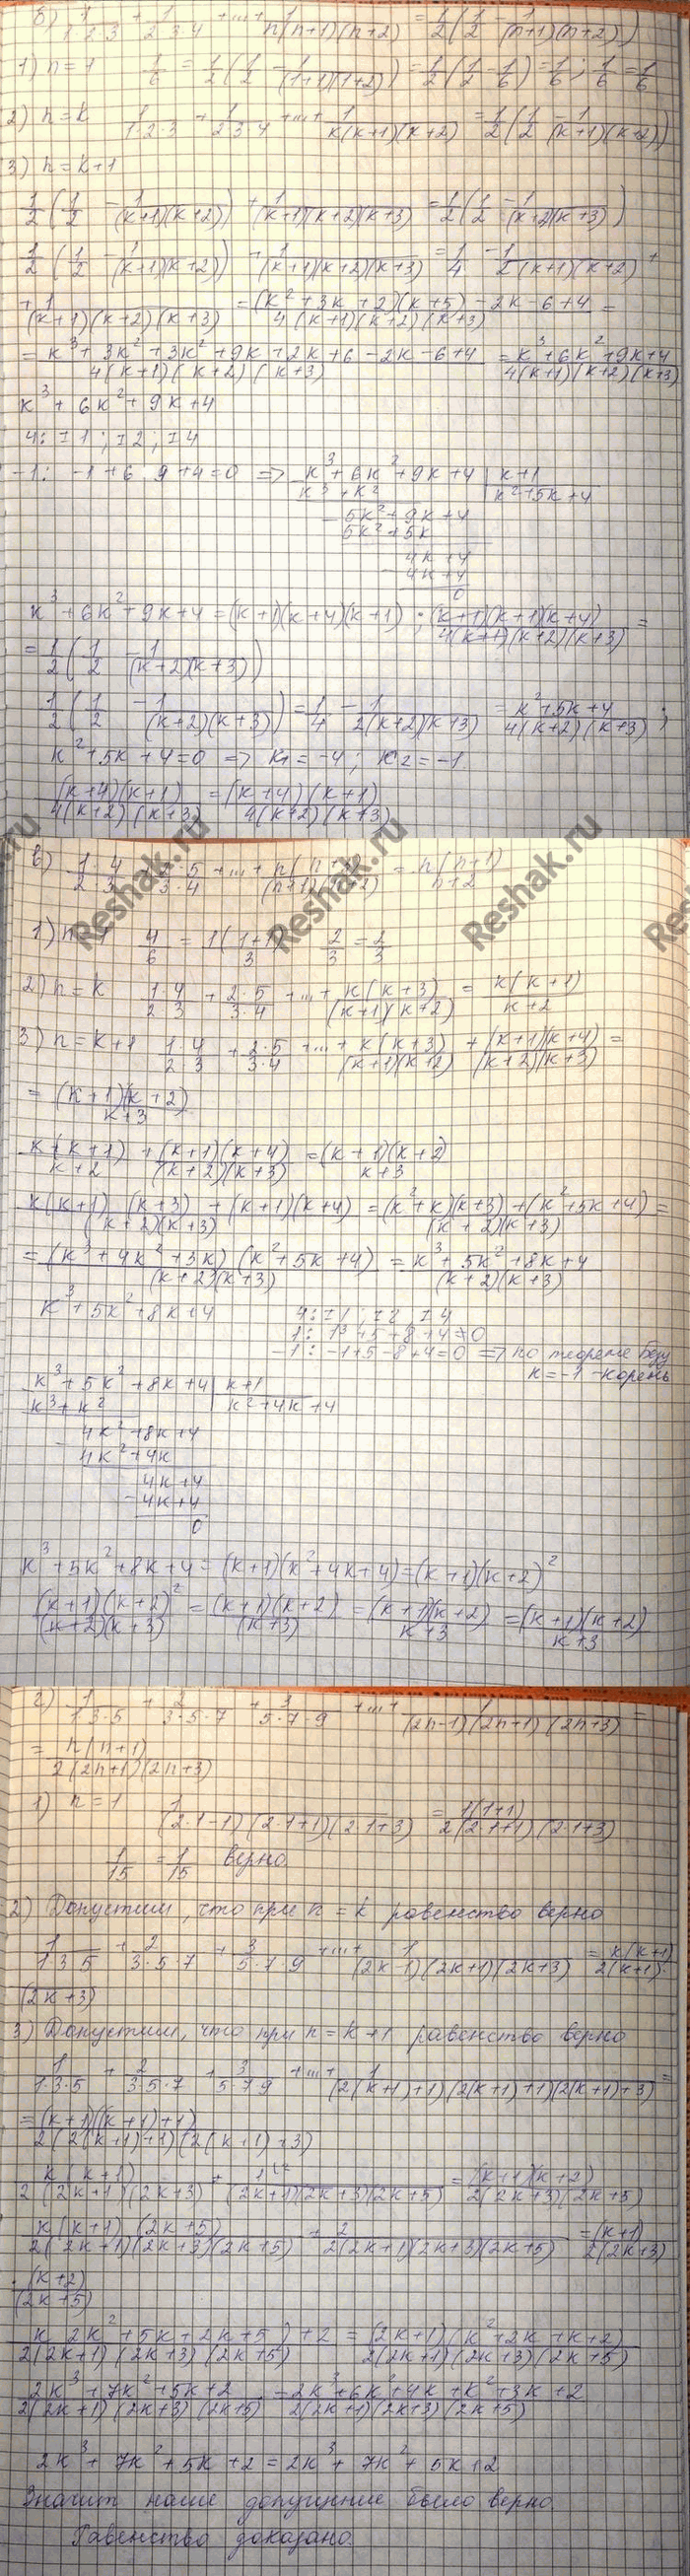 б) 1/(1·2·3) + 1/(2·3·4) + ... + 1/(n(n+1)(n+2)) = 1/2 (1/2 - 1/((n+1)(n+2)))
1) n=1 1/6 = 1/2 (1/2 - 1/((1+1)(1+2))) = 1/2 (1/2 - 1/6) = 1/6; 1/6 = 1/6
2) n=k 1/(1·2·3) + 1/(2·3·4) + ... + 1/(k(k+1)(k+2)) = 1/2 (1/2 - 1/((k+1)(k+2)))
3) n=k+1
1/2 (1/2 - 1/((k+1)(k+2))) + 1/((k+1)(k+2)(k+3)) = 1/2 (1/2 - 1/((k+2)(k+3)))
1/2 (1/2 - 1/((k+1)(k+2))) + 1/((k+1)(k+2)(k+3)) = 1/4 - 1/(2(k+1)(k+2)) +
+ 1/((k+1)(k+2)(k+3)) = ((k²+3k+2)(k+3) - 2k - 6 + 4)/(4(k+1)(k+2)(k+3)) =
= (k³+3k²+3k²+9k+2k+6-2k-6+4)/(4(k+1)(k+2)(k+3)) = (k³+6k²+9k+4)/(4(k+1)(k+2)(k+3))
k³+6k²+9k+4
4: ±1; ±2; ±4
-1: -1+6-9+4=0 => k³+6k²+9k+4 | k+1
k³+k² | k²+5k+4
- 5k²+9k+4
5k²+5k
4k+4
- 4k+4
0
k³+6k²+9k+4=(k+1)(k+4)(k+1); ((k+1)(k+1)(k+4))/(4(k+1)(k+2)(k+3)) =
= 1/2 (1/2 - 1/((k+2)(k+3)))
1/2 (1/2 - 1/((k+2)(k+3))) = 1/4 - 1/(2(k+2)(k+3)) = (k²+5k+4)/(4(k+2)(k+3));
k²+5k+4=0 => k₁=-4; k₂=-1.
((k+4)(k+1))/(4(k+2)(k+3)) = ((k+4)(k+1))/(4(k+2)(k+3))
Reshak.ru
Reshak.ru
в) (1·4)/(2·3) + (2·5)/(3·4) + ... + (n(n+3))/((n+1)(n+2)) = (n(n+1))/(n+2)
1) n=1 4/6 = (1(1+1))/3 2/3 = 2/3
2) n=k (1·4)/(2·3) + (2·5)/(3·4) + ... + (k(k+3))/((k+1)(k+2)) = (k(k+1))/(k+2)
3) n=k+1 (1·4)/(2·3) + (2·5)/(3·4) + ... + (k(k+3))/((k+1)(k+2)) + ((k+1)(k+4))/((k+2)(k+3)) =
= ((k+1)(k+2))/(k+3)
(k(k+1))/(k+2) + ((k+1)(k+4))/((k+2)(k+3)) = ((k+1)(k+2))/(k+3)
(k(k+1)(k+3) + (k+1)(k+4))/((k+2)(k+3)) = ((k²+k)(k+3)+(k²+5k+4))/((k+2)(k+3)) =
= ((k³+4k²+3k)(k²+5k+4))/((k+2)(k+3)) = (k³+5k²+8k+4)/((k+2)(k+3))
k³+5k²+8k+4 4: ±1; ±2; ±4
1: 1³+5+8+4≠0
-1: -1+5-8+4=0 => по теореме Безу
k=-1 - корень
k³+5k²+8k+4 | k+1
k³+k² | k²+4k+4
- 4k²+8k+4
4k²+4k
4k+4
- 4k+4
0
k³+5k²+8k+4=(k+1)(k²+4k+4)=(k+1)(k+2)²
((k+1)(k+2)²)/((k+2)(k+3)) = ((k+1)(k+2))/(k+3) = ((k+1)(k+2))/(k+3) = ((k+1)(k+2))/(k+3)
г) 1/(1·3·5) + 2/(3·5·7) + 3/(5·7·9) + ... + 1/((2n-1)(2n+1)(2n+3)) =
= (n(n+1))/(2(2n+1)(2n+3))
1) n=1 1/((2·1-1)(2·1+1)(2·1+3)) = (1(1+1))/(2(2·1+1)(2·1+3))
1/15 = 1/15 верно.
2) Допустим, что при n=k равенство верно
1/(1·3·5) + 2/(3·5·7) + 3/(5·7·9) + ... + 1/((2k-1)(2k+1)(2k+3)) = (k(k+1))/(2(k+1)·
(2k+3)
3) Допустим, что при n=k+1 равенство верно
1/(1·3·5) + 2/(3·5·7) + 3/(5·7·9) + ... + 1/((2(k+1)+1)(2(k+1)+1)(2(k+1)+3)) =
= ((k+1)((k+1)+1))/(2(2(k+1)+1)(2(k+1)+3))
(k(k+1))/(2(2k+1)(2k+3)) + 1/((2k+1)(2k+3)(2k+5)) = ((k+1)(k+2))/(2(2k+3)(2k+5))
(k(k+1)(2k+5))/(2(2k+1)(2k+3)(2k+5)) + 2/(2(2k+1)(2k+3)(2k+5)) = (k+1)/(2(2k+3))
· (k+2)/(2k+5)
(k(2k²+5k+2k+5)+2)/(2(2k+1)(2k+3)(2k+5)) = ((2k+1)(k²+2k+k+2))/(2(2k+1)(2k+3)(2k+5))
(2k³+7k²+5k+2)/(2(2k+1)(2k+3)(2k+5)) = (2k³+6k²+4k+k²+3k+2)/(2(2k+1)(2k+3)(2k+5))
2k³+7k²+5k+2=2k³+7k²+5k+2
Значит наше допущение было верно.
Равенство доказано.